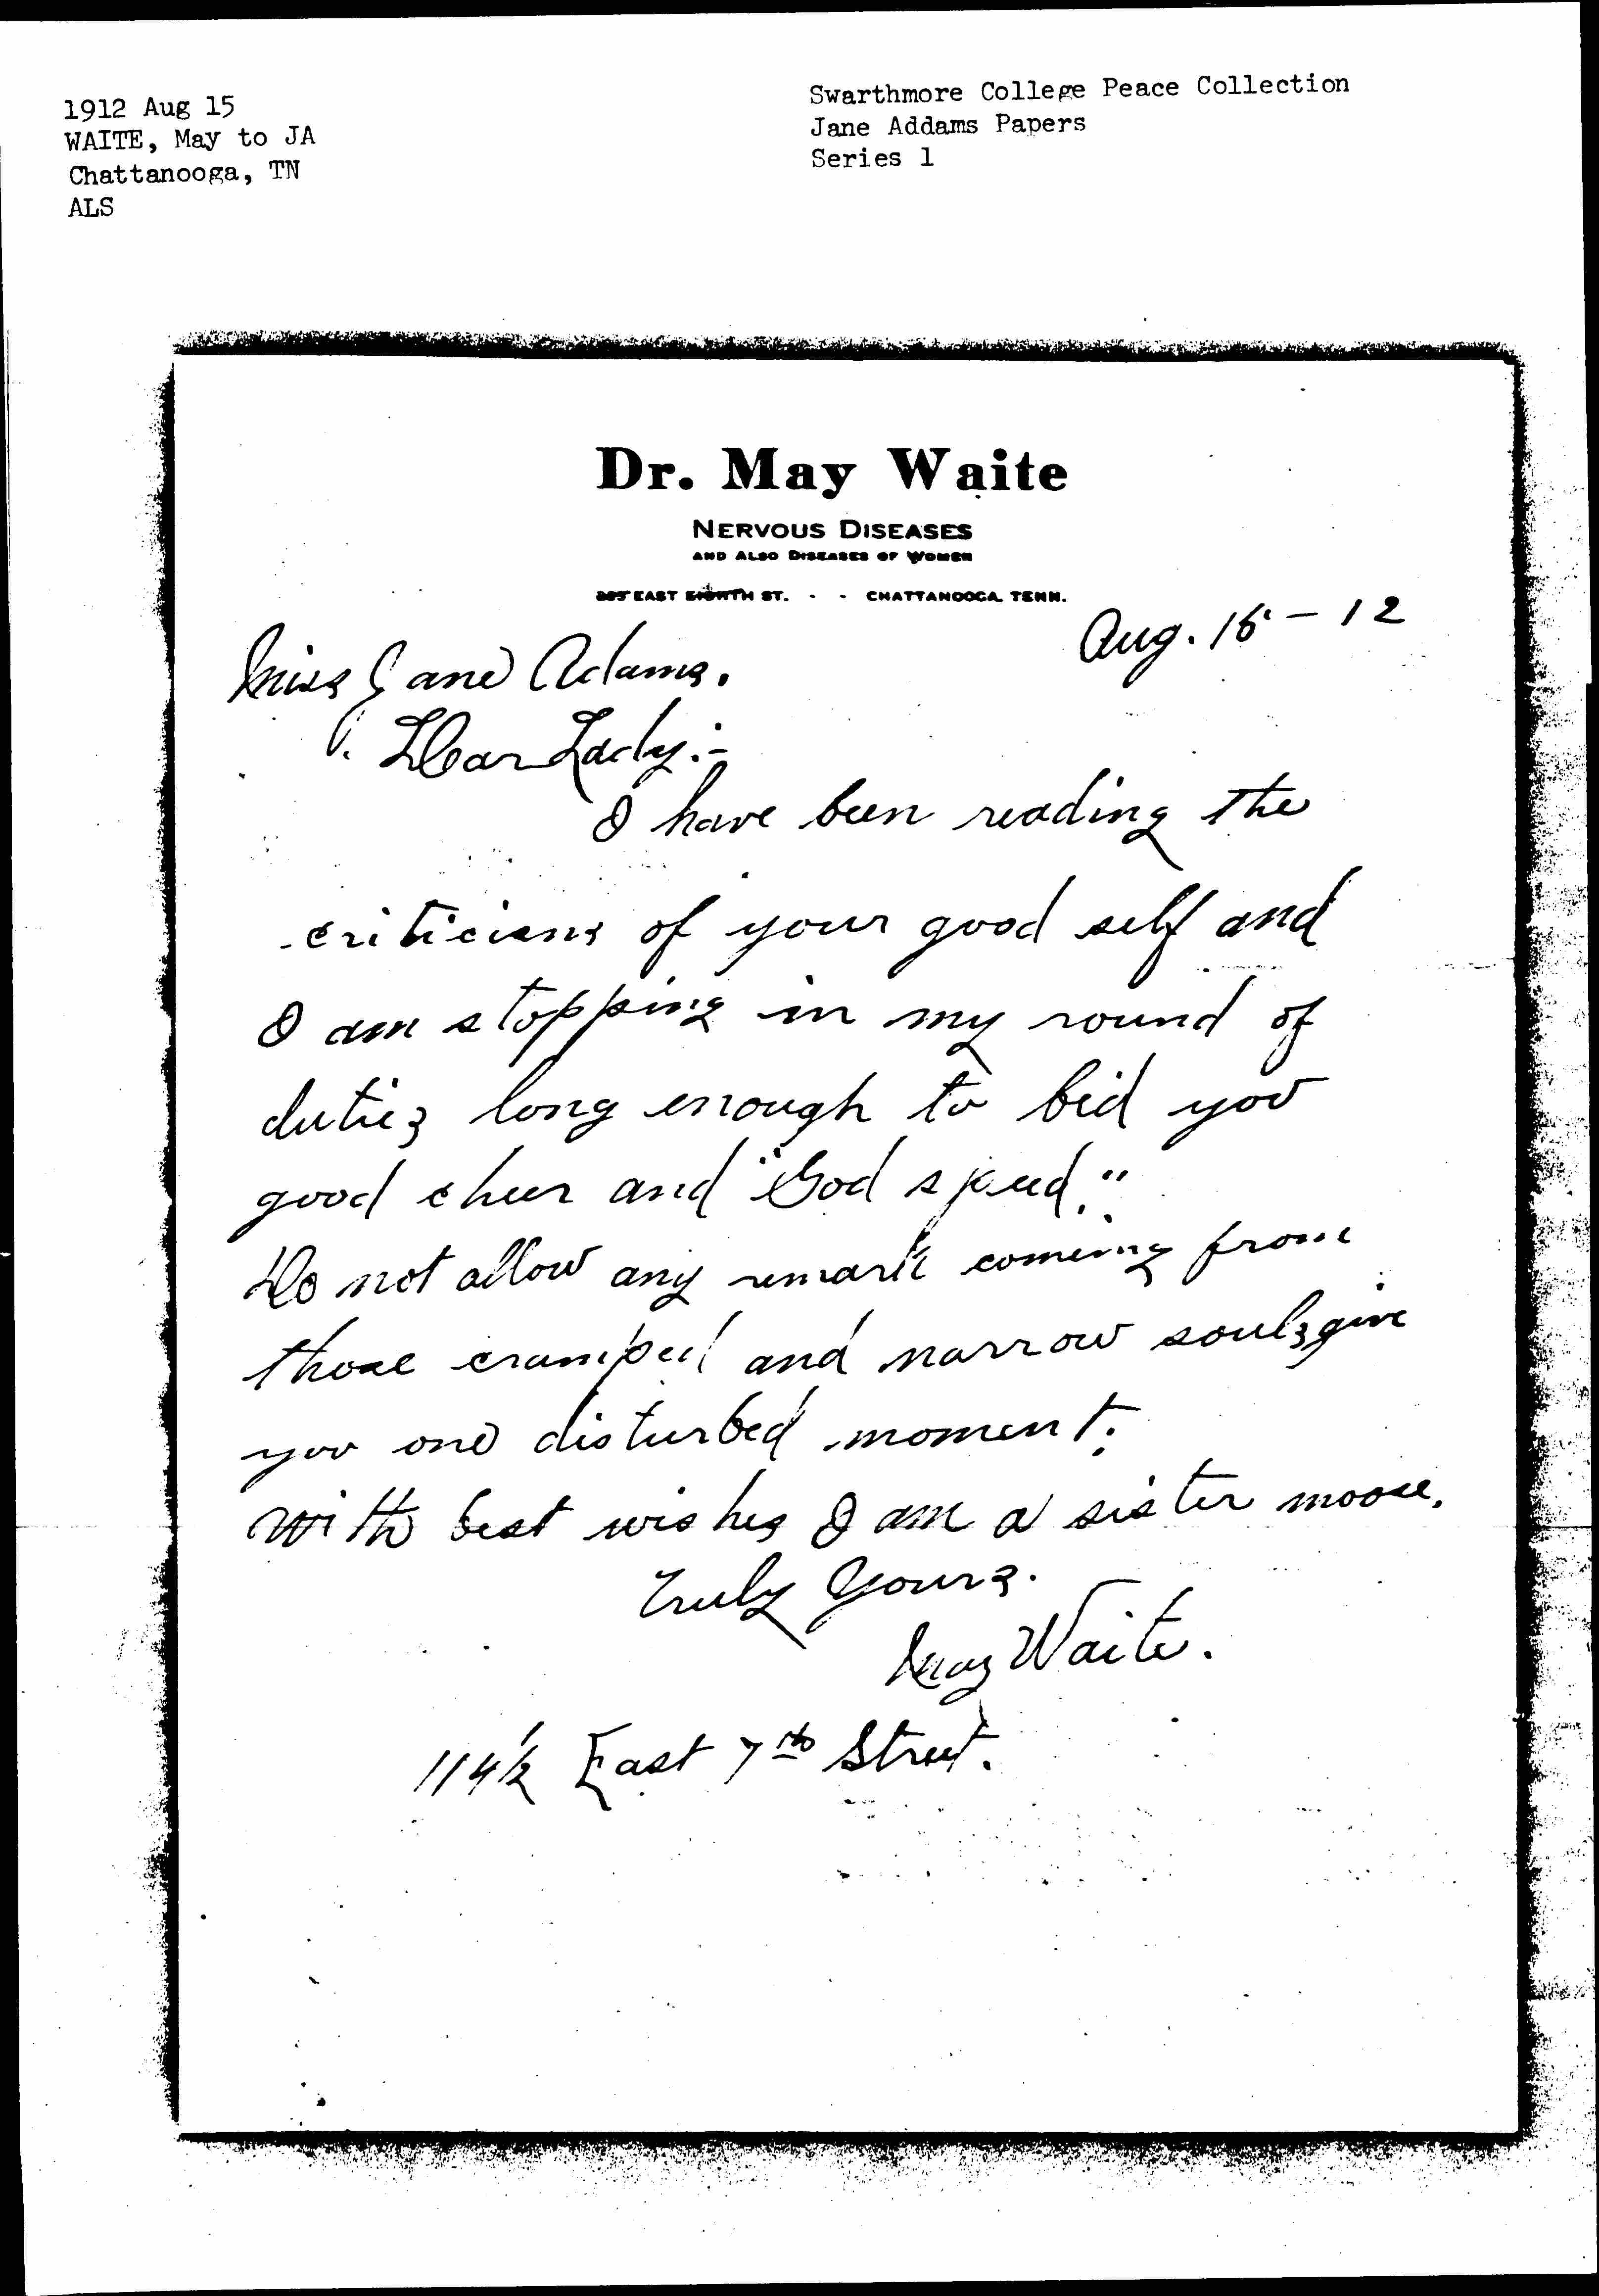 1912 Aug 15
WAITE, May to JA
Chattanooga, TN
ALS
Swarthmore College Peace Collection
Jane Addams Papers
Series 1
Dr. May Waite
NERVOUS DISEASES
AND ALSO DISEASES OF WOMEN
EAST EIGHTH ST. - - CHATTANOOGA, TENN.
Aug. 15 - 12
Miss Jane Adams.
Dear Lady:-
I have been reading the
criticisms of your good self and
I am stopping in my round of
duties long enough to bid you
good cheer and "God speed."
Do not allow any remark comeing from
those cramped and narrow souls give
you one disturbed moment.
With best wishes I am a sister moose.
Truly Yours.
May Waite.
114½ East 7th Street.